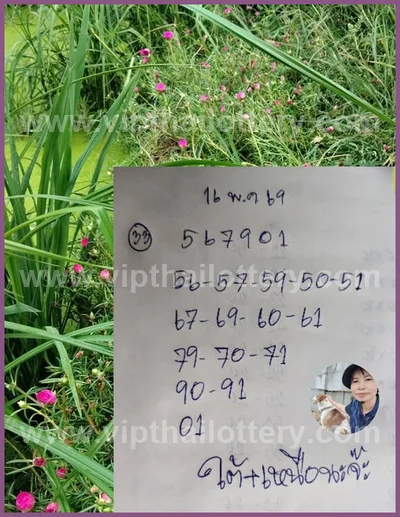 www.vipthailottery.com
16 พ.ค 69
33 567901
www.vipthailottery.com
56-57-59-50-51
67-69-60-61
79-70-71
90-91
www.vipthailottery.com
01
ใต้+เหนือนะจ๊ะ